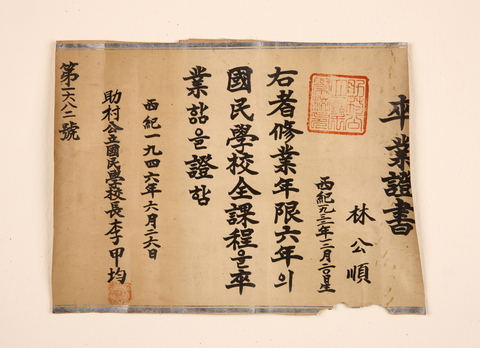 卒業證書
林公順
西紀一九三三年二月二〇日生
右者修業年限六年의
國民學校全課程을卒
業함을證함
西紀一九四六年六月二六日
助村公立國民學校長李甲均
第一六八二號